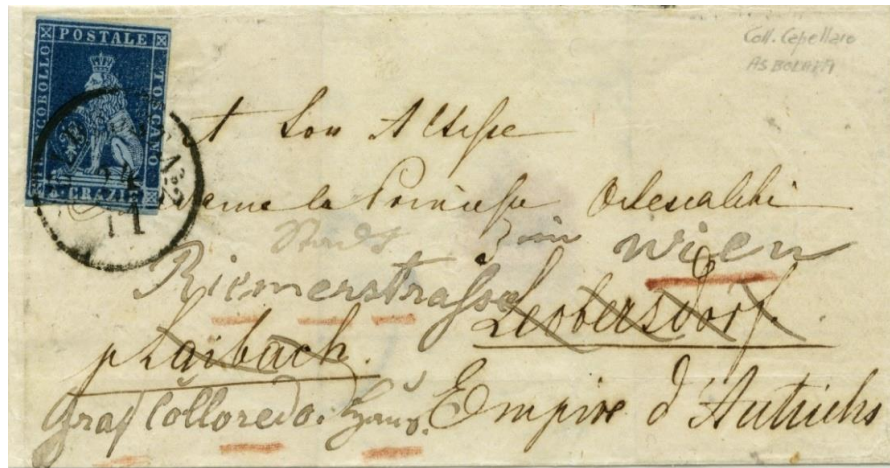 Coll. Capellaro
AS BOLAFFI
POSTALE
TOSCANO
A Son Altesse
la Princesse Odescalchi
Stadt Wien
Riemerstrasse Leobersdorf.
p Laibach.
Graf Colloredo. Haus. Empire d'Autriche